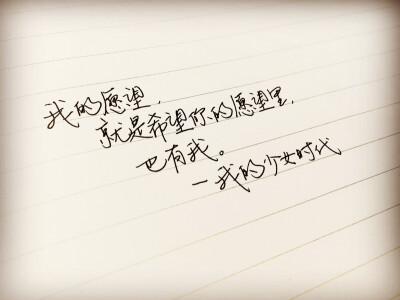 我的愿望,
就是希望你的愿望里,
也有我。
—我的少女时代